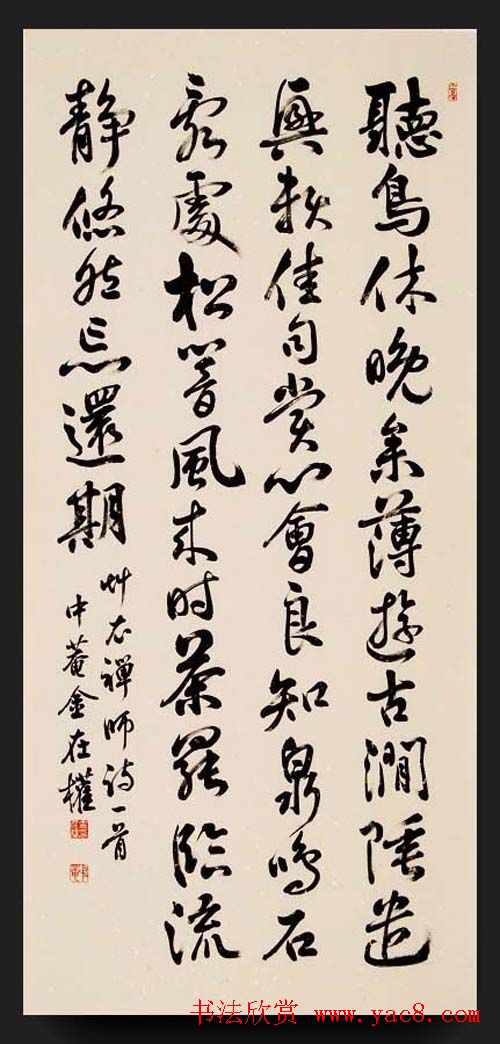 聽鳥休晚參薄遊古澗陲遣
興賴佳句賞心會良知泉鳴石
亂處松響風来时茶罷臨流
靜悠然忘還期
艸衣禪師詩一首
中菴金在權
书法欣赏 www.yac8.com